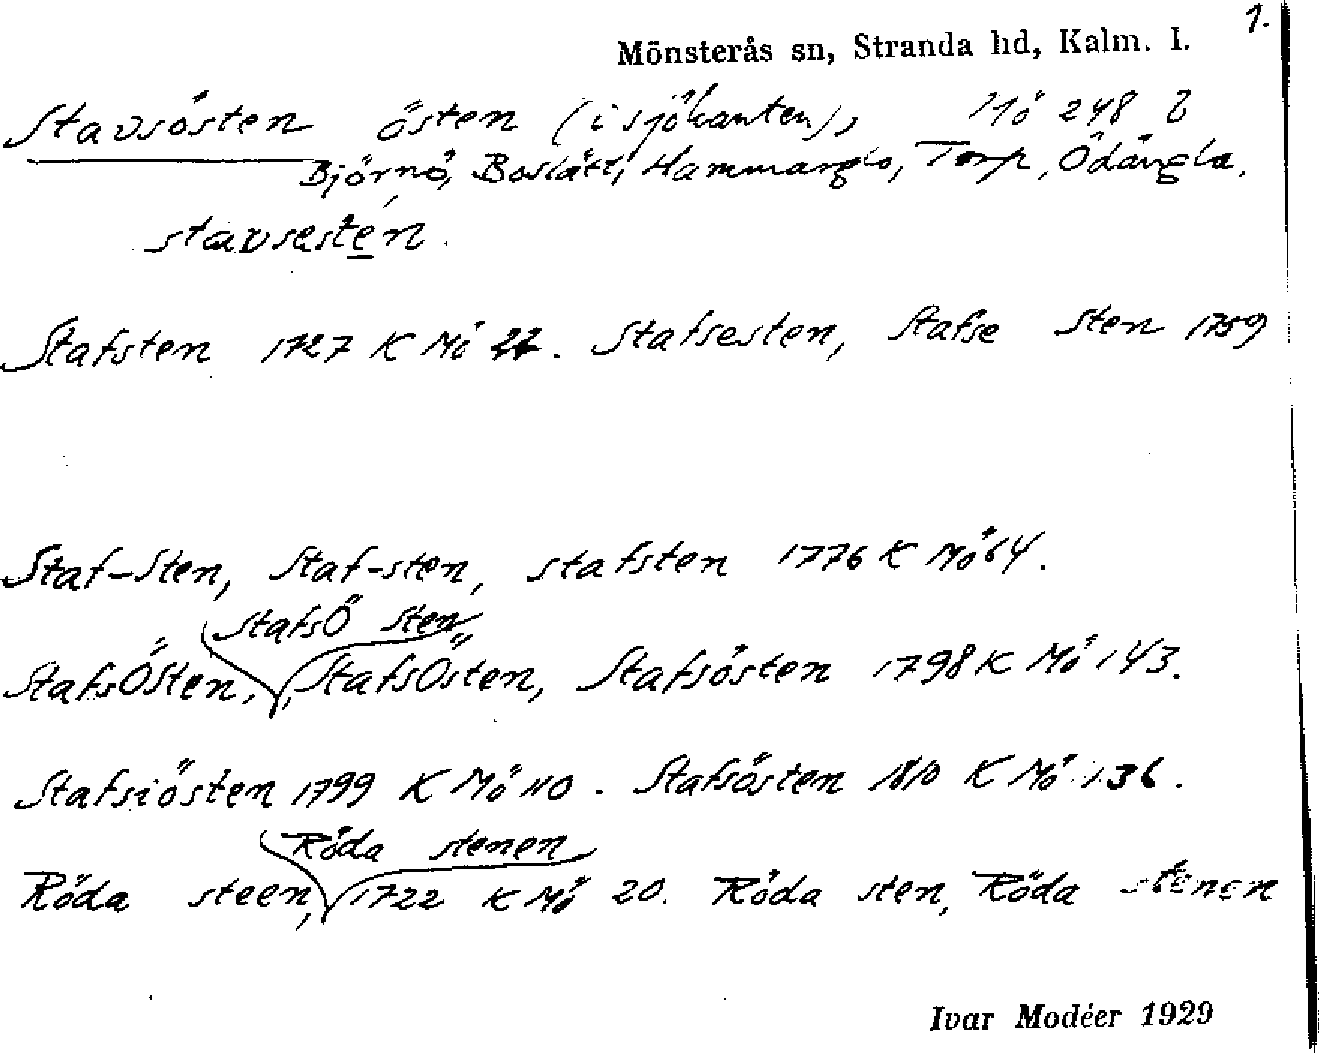 1.
Mönsterås sn, Stranda hd, Kalm. l.
Stavsösten östen (i sjökanten), Mö 248 b
Björnö, Boslätt, Hammarglo, Torp, Ödängla.
stavsestén.
Stafsten 1727 K Mö 22. Stafsesten, Stafse Sten 1759
Staf-Sten, Staf-sten, stafsten 1776 K Mö 64.
StafsÖ Sten
StafsÖSten, StafsÖsten, Stafsösten 1798 K Mö 143.
Stafsiösten 1799 K Mö 110. Stafsösten 1810 K Mö 136.
Röda stenen
Röda steen, 1722 K Mö 20. Röda sten, Röda stenen
Ivar Modéer 1929